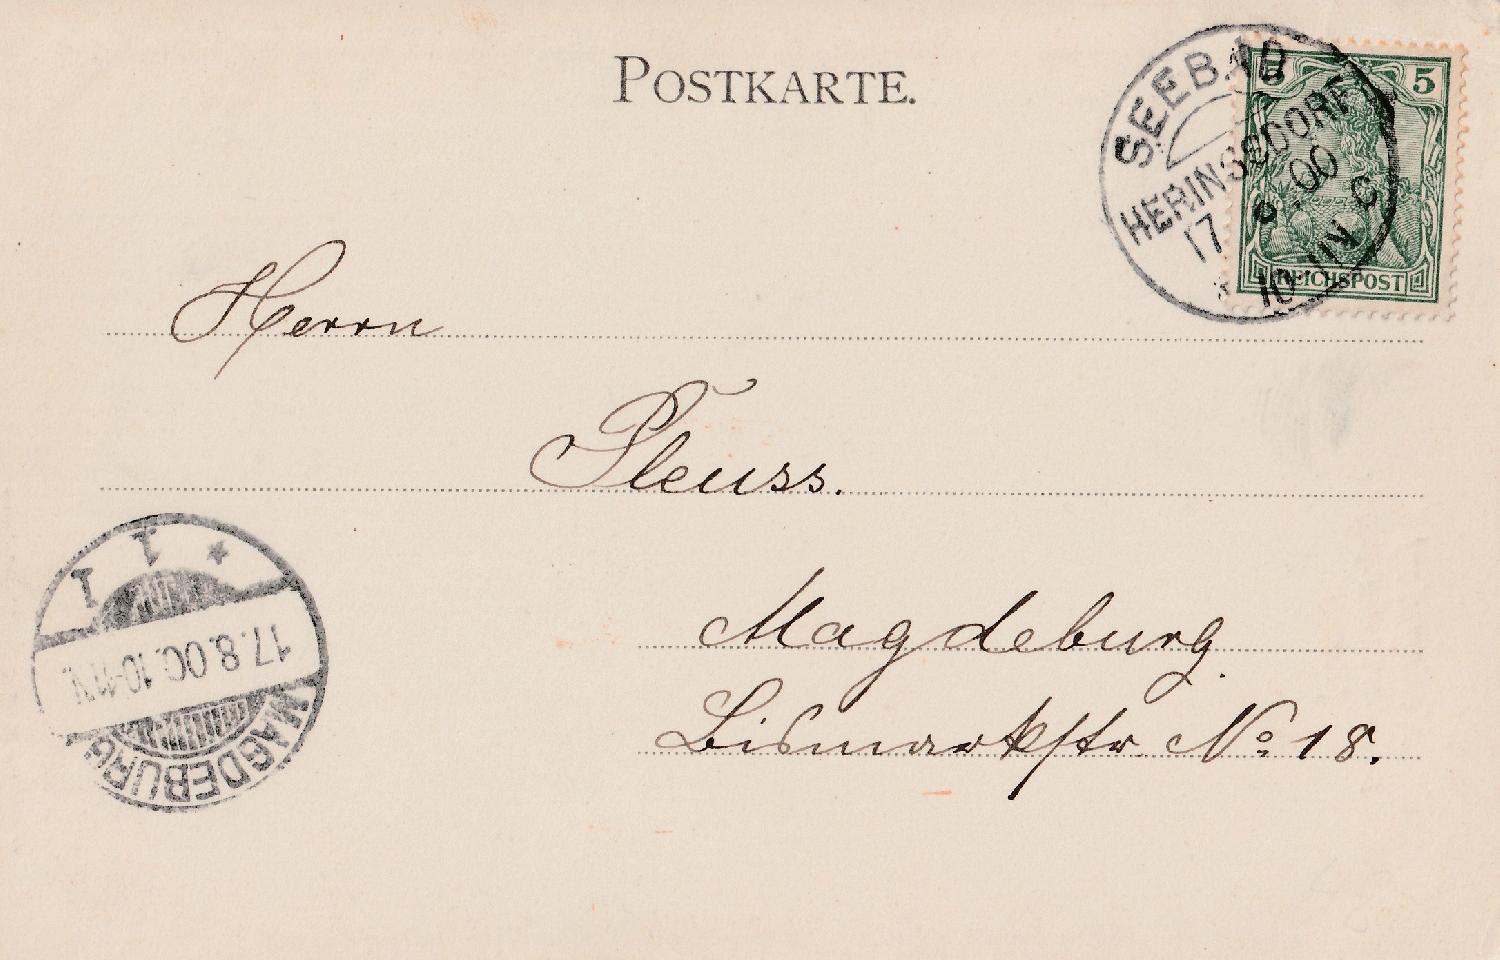 POSTKARTE.
SEEBAD
HERINGSDORF
17 8.00
10-11N
5 5
REICHSPOST
Herrn
Pleuss.
Magdeburg.
Bismarkstr No 18.
1 1 *
17.8.00.10-11V.
MAGDEBURG.